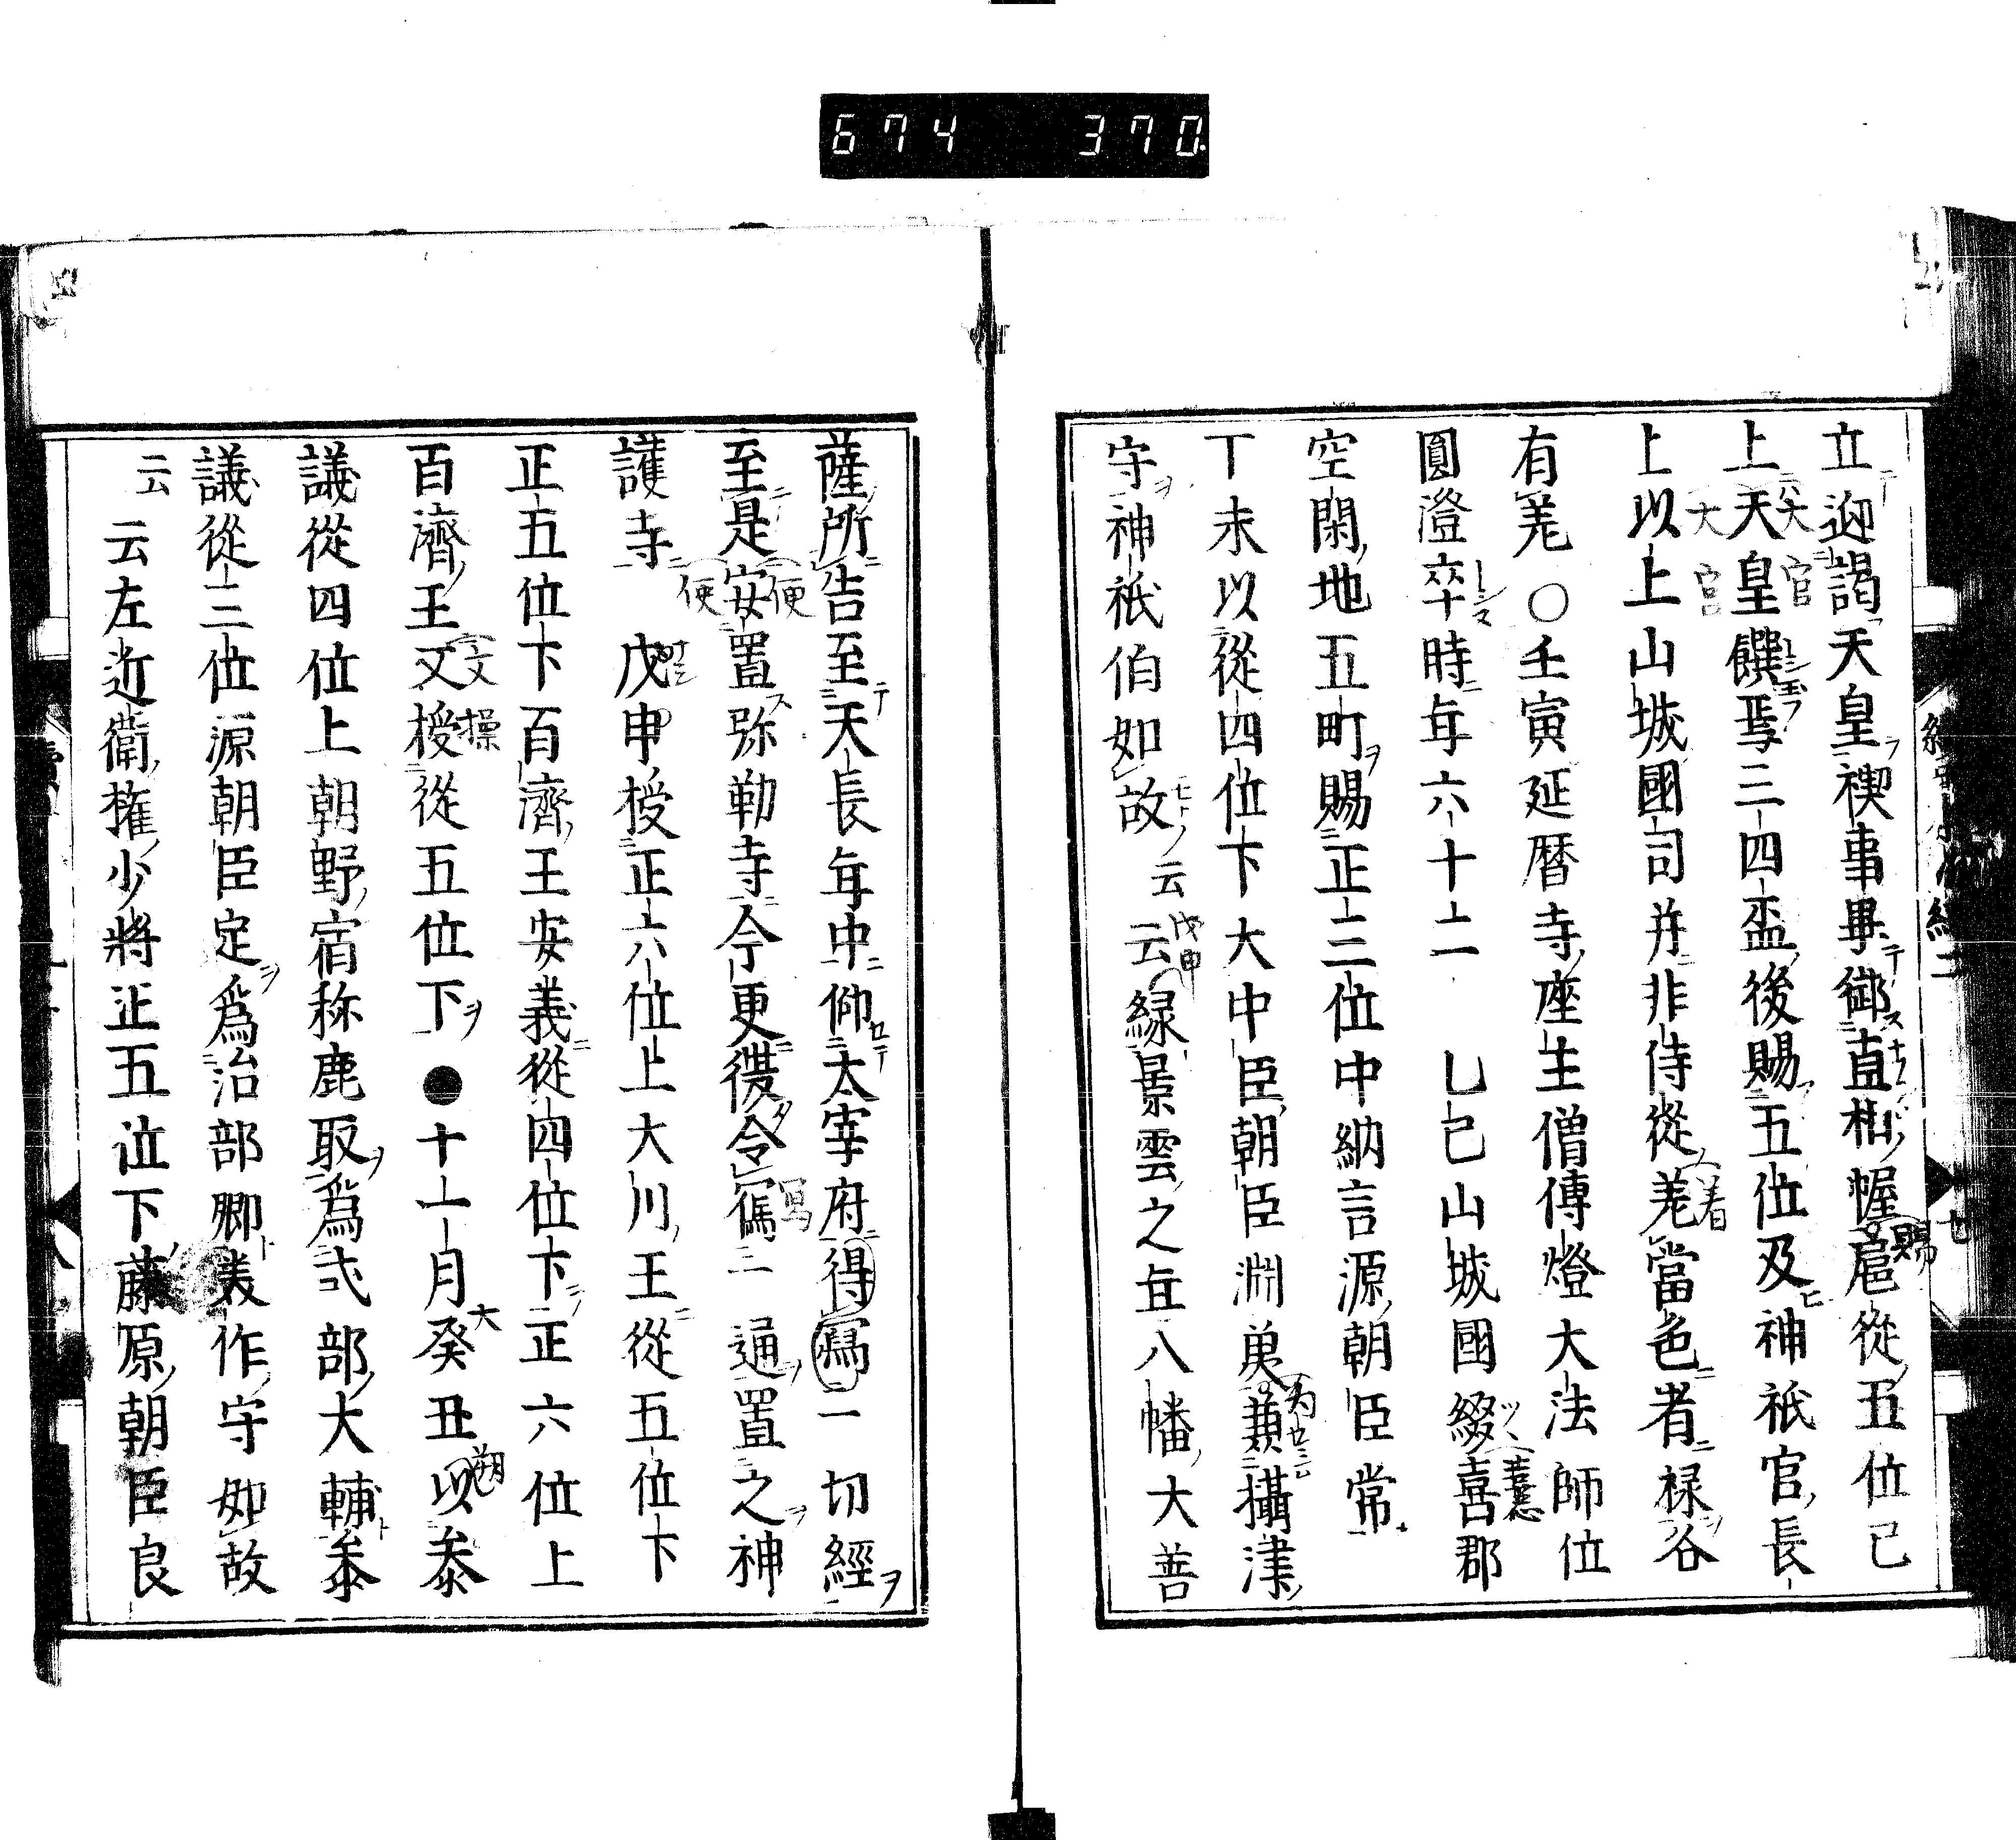 674 370
立迎謁天皇禊事畢御直相幄扈從五位已
上天皇饌焉三四盃後賜五位及神祇官長
上以上山城國司并非侍從羌當色者禄各
有羌○壬寅延暦寺座主僧傳燈大法師位
圓澄卒時年六十二 乙巳山城國綴喜郡
空閑地五町賜正三位中納言源朝臣常
丁未以從四位下大中臣朝臣淵魚兼攝津
守神祇伯如故云云緑景雲之年八幡大菩
薩所告至天長年中仰太宰府得寫一切經
至是安置弥勒寺今更復令寫二通置之神
護寺 戊申授正六位上大川王從五位下
正五位下百濟王安義從四位下正六位上
百濟王文授從五位下●十一月癸丑以泰
議從四位上朝野宿祢鹿取爲式部大輔泰
議從三位源朝臣定爲治部卿美作守如故
云云左近衛權少將正五位下藤原朝臣良